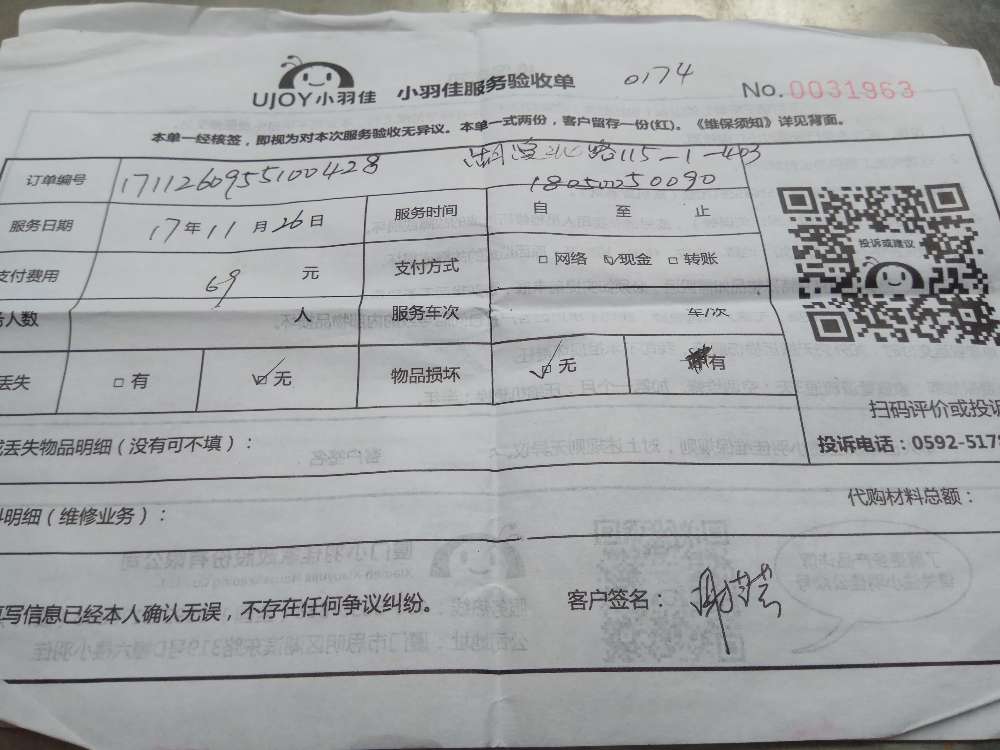 UJOY小羽佳 小羽佳服务验收单 0174 No.0031963
本单一经核签，即视为对本次服务验收无异议。本单一式两份，客户留存一份(红)。《维保须知》详见背面。
路115-1-403
订单编号 1711260955100428 18050050090
服务日期 17年11月26日 服务时间 自 至 止
支付费用 69 元 支付方式 □网络 ☑现金 □转账
人数 人 服务车次 车/次
丢失 □有 ☑无 物品损坏 ☑无 有
投诉或建议
扫码评价或投诉
丢失物品明细（没有可不填）： 投诉电话：0592-5178
代购材料总额：
明细（维修业务）：
写信息已经本人确认无误，不存在任何争议纠纷。 客户签名：